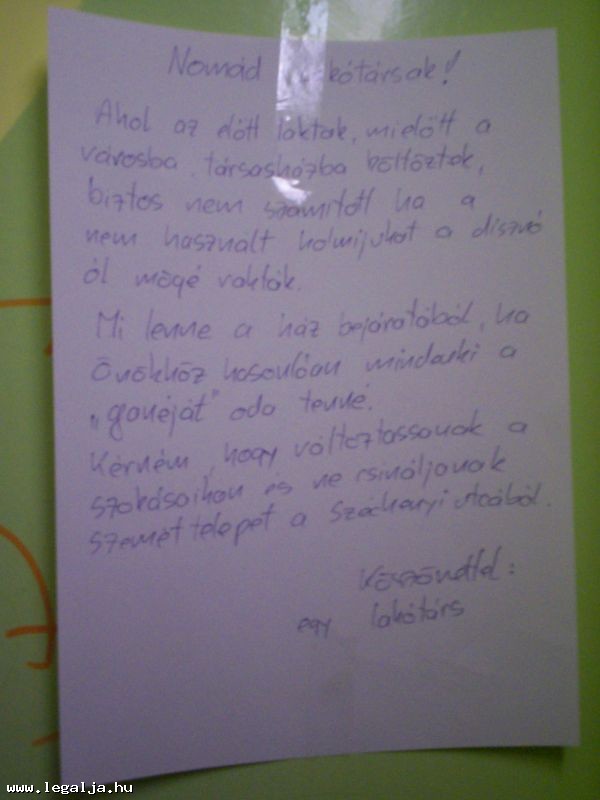 Nomád lakótársak!
Ahol az előtt laktak, mielőtt a
városba, társasházba költöztek,
biztos nem számított ha a
nem használt holmijukat a disznó
ól mögé rakták.
Mi lenne a ház bejáratából, ha
Önökhöz hasonlóan mindenki a
„ganéját” oda tenné.
Kérném, hogy változtassanak a
szokásaikon és ne csináljanak
szemét telepet a Széchenyi utcából.
Köszönettel:
egy lakótárs
www.legalja.hu